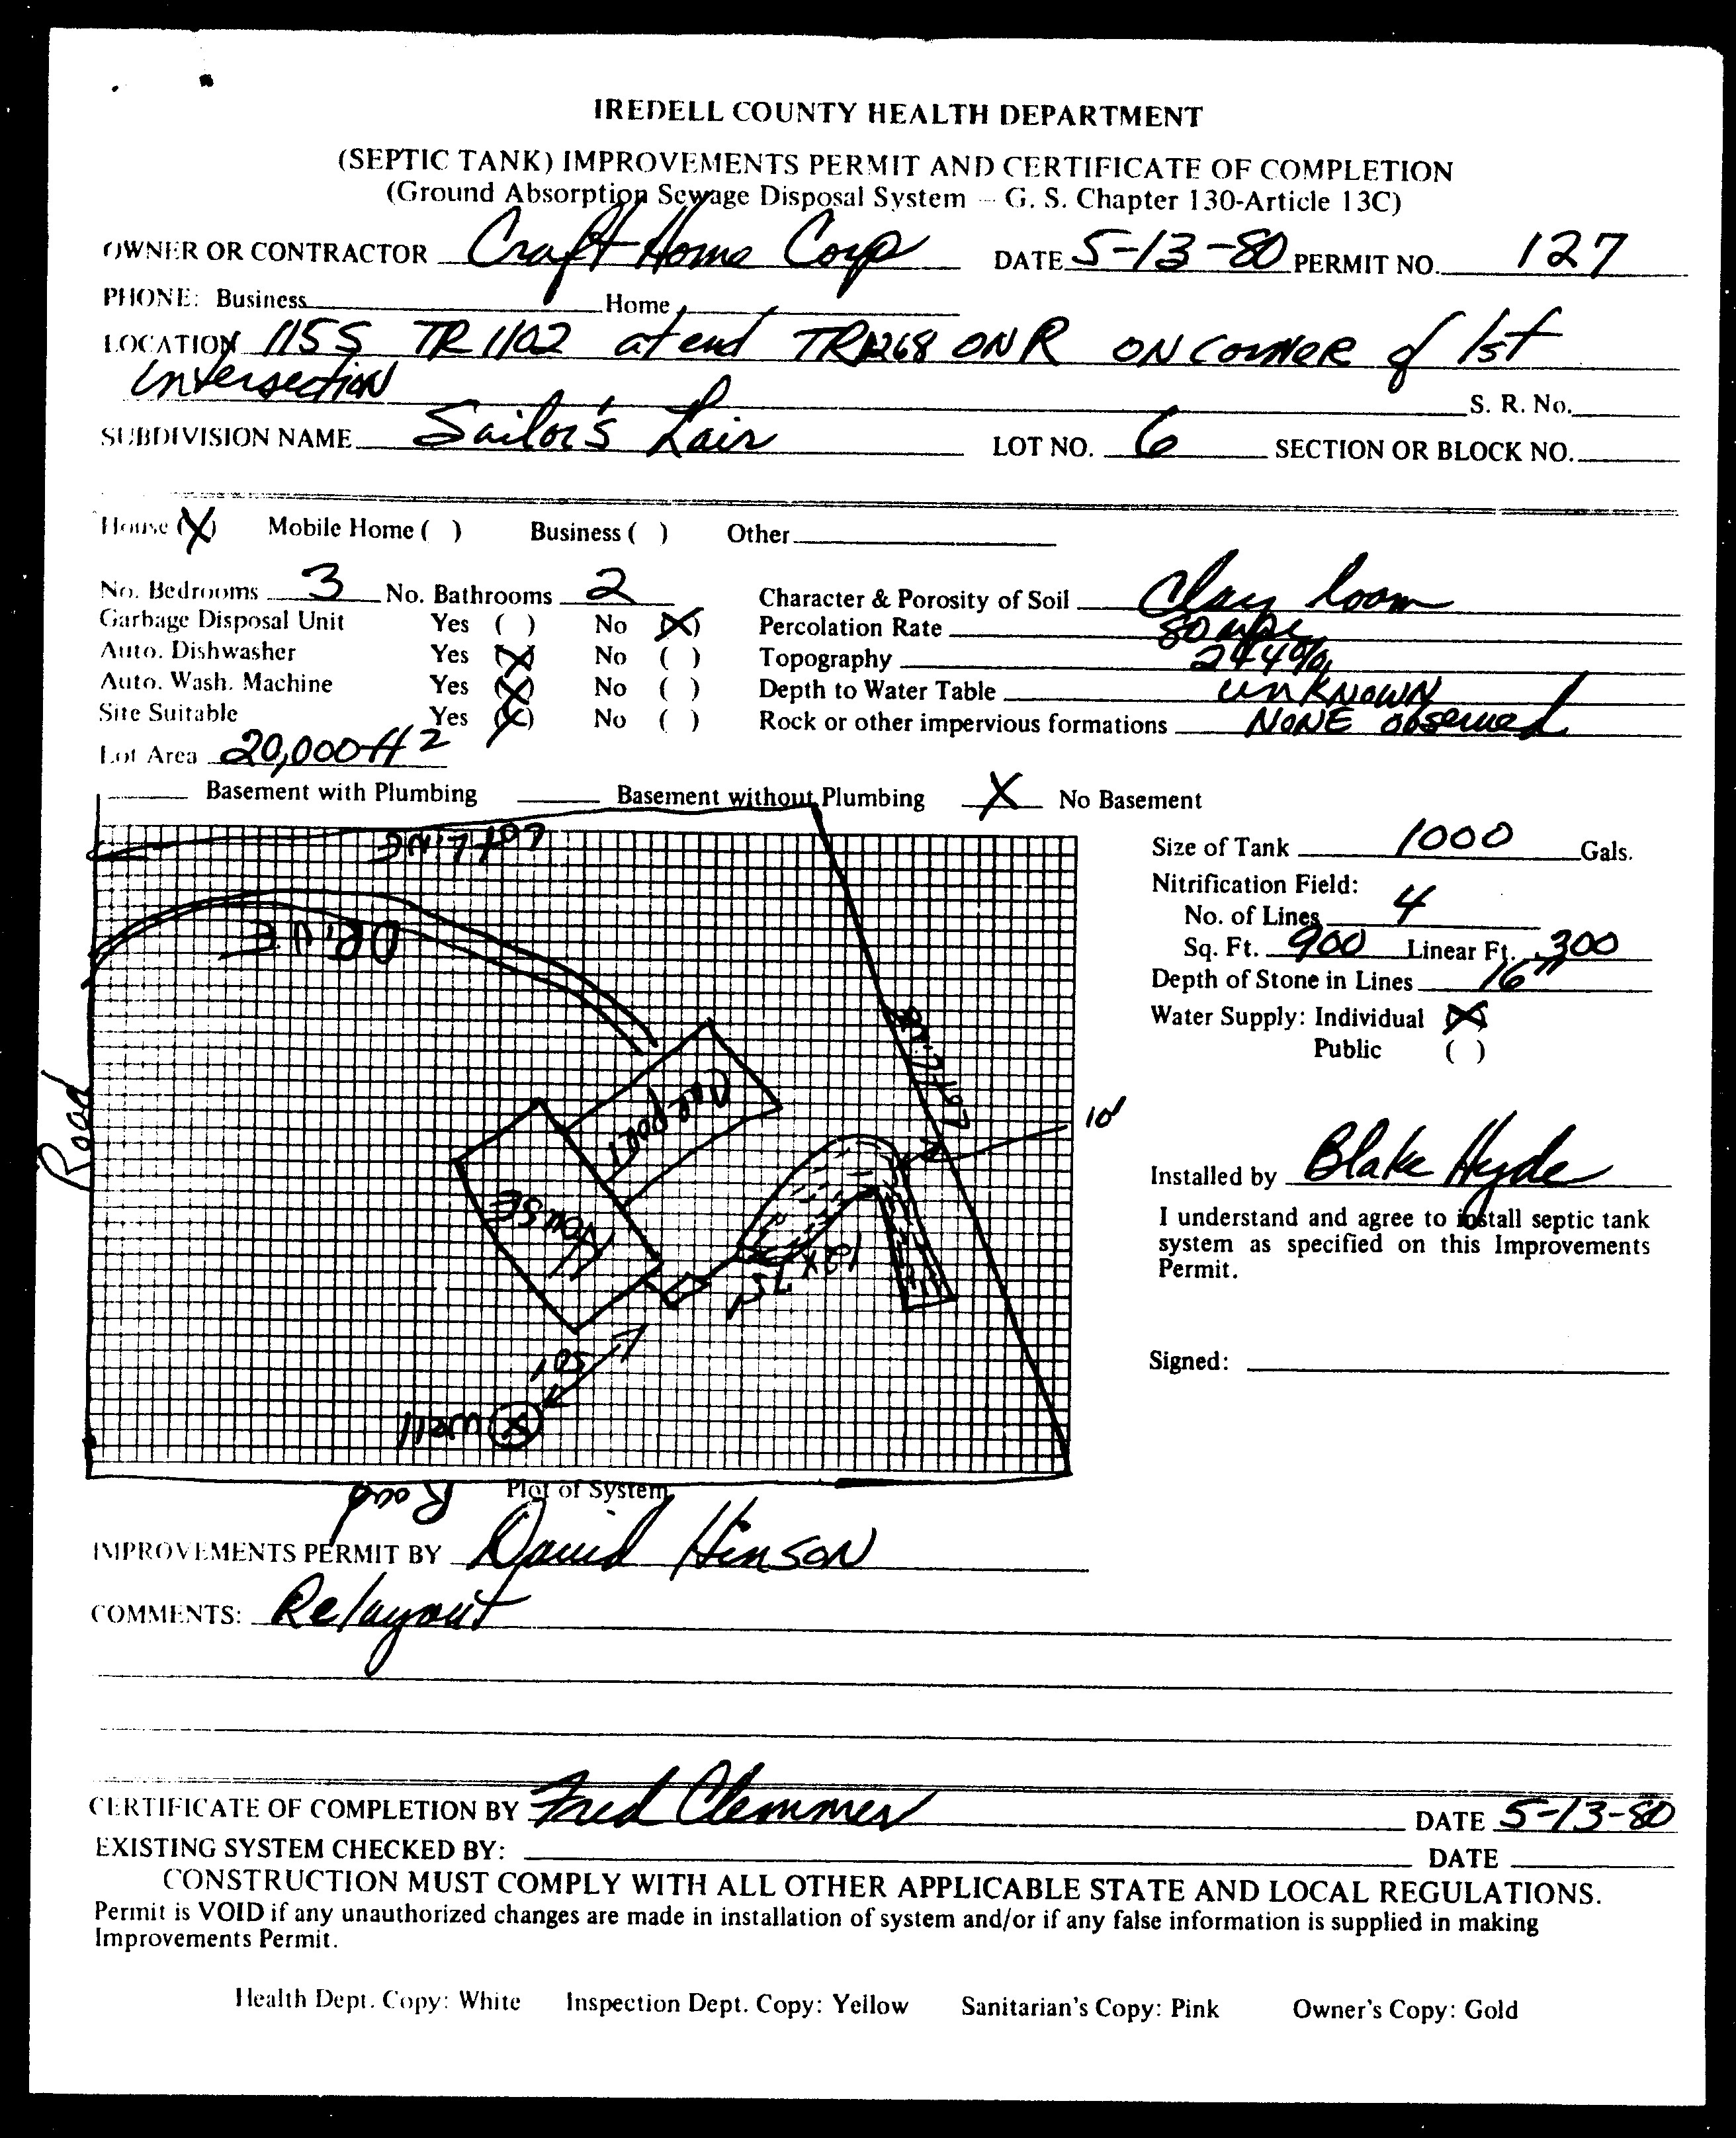 IREDELL COUNTY HEALTH DEPARTMENT
(SEPTIC TANK) IMPROVEMENTS PERMIT AND CERTIFICATE OF COMPLETION
(Ground Absorption Sewage Disposal System — G. S. Chapter 130-Article 13C)
OWNER OR CONTRACTOR Craft Home Corp DATE 5-13-80 PERMIT NO. 127
PHONE: Business Home
LOCATION 115S TR 1102 at end TR1268 ON R ON CORNER of 1st
intersection
S. R. No.
SUBDIVISION NAME Sailor's Lair LOT NO. 6 SECTION OR BLOCK NO.
House (X) Mobile Home ( ) Business ( ) Other
No. Bedrooms 3 No. Bathrooms 2 Character & Porosity of Soil Clay loam
Garbage Disposal Unit Yes ( ) No (X) Percolation Rate 80 mpi
Auto. Dishwasher Yes (X) No ( ) Topography
Auto. Wash. Machine Yes (X) No ( ) Depth to Water Table UNKNOWN
Site Suitable Yes (X) No ( ) Rock or other impervious formations NONE observed
Lot Area 20,000 ft 2
Basement with Plumbing Basement without Plumbing X No Basement
Lot LiNE
Size of Tank 1000 Gals.
Nitrification Field:
No. of Lines 4
DRiVE
Sq. Ft. 900 Linear Ft. 300
Depth of Stone in Lines 16"
Water Supply: Individual (X)
Public ( )
Lot Line
Car port
10'
Road
Installed by Blake Hyde
HOUSE
I understand and agree to install septic tank
system as specified on this Improvements
Permit.
75'
50'
Signed:
well
Road
Plot of System
IMPROVEMENTS PERMIT BY David HINSON
COMMENTS: Relayout
CERTIFICATE OF COMPLETION BY Fred Clemmer DATE 5-13-80
EXISTING SYSTEM CHECKED BY: DATE
CONSTRUCTION MUST COMPLY WITH ALL OTHER APPLICABLE STATE AND LOCAL REGULATIONS.
Permit is VOID if any unauthorized changes are made in installation of system and/or if any false information is supplied in making
Improvements Permit.
Health Dept. Copy: White Inspection Dept. Copy: Yellow Sanitarian's Copy: Pink Owner's Copy: Gold